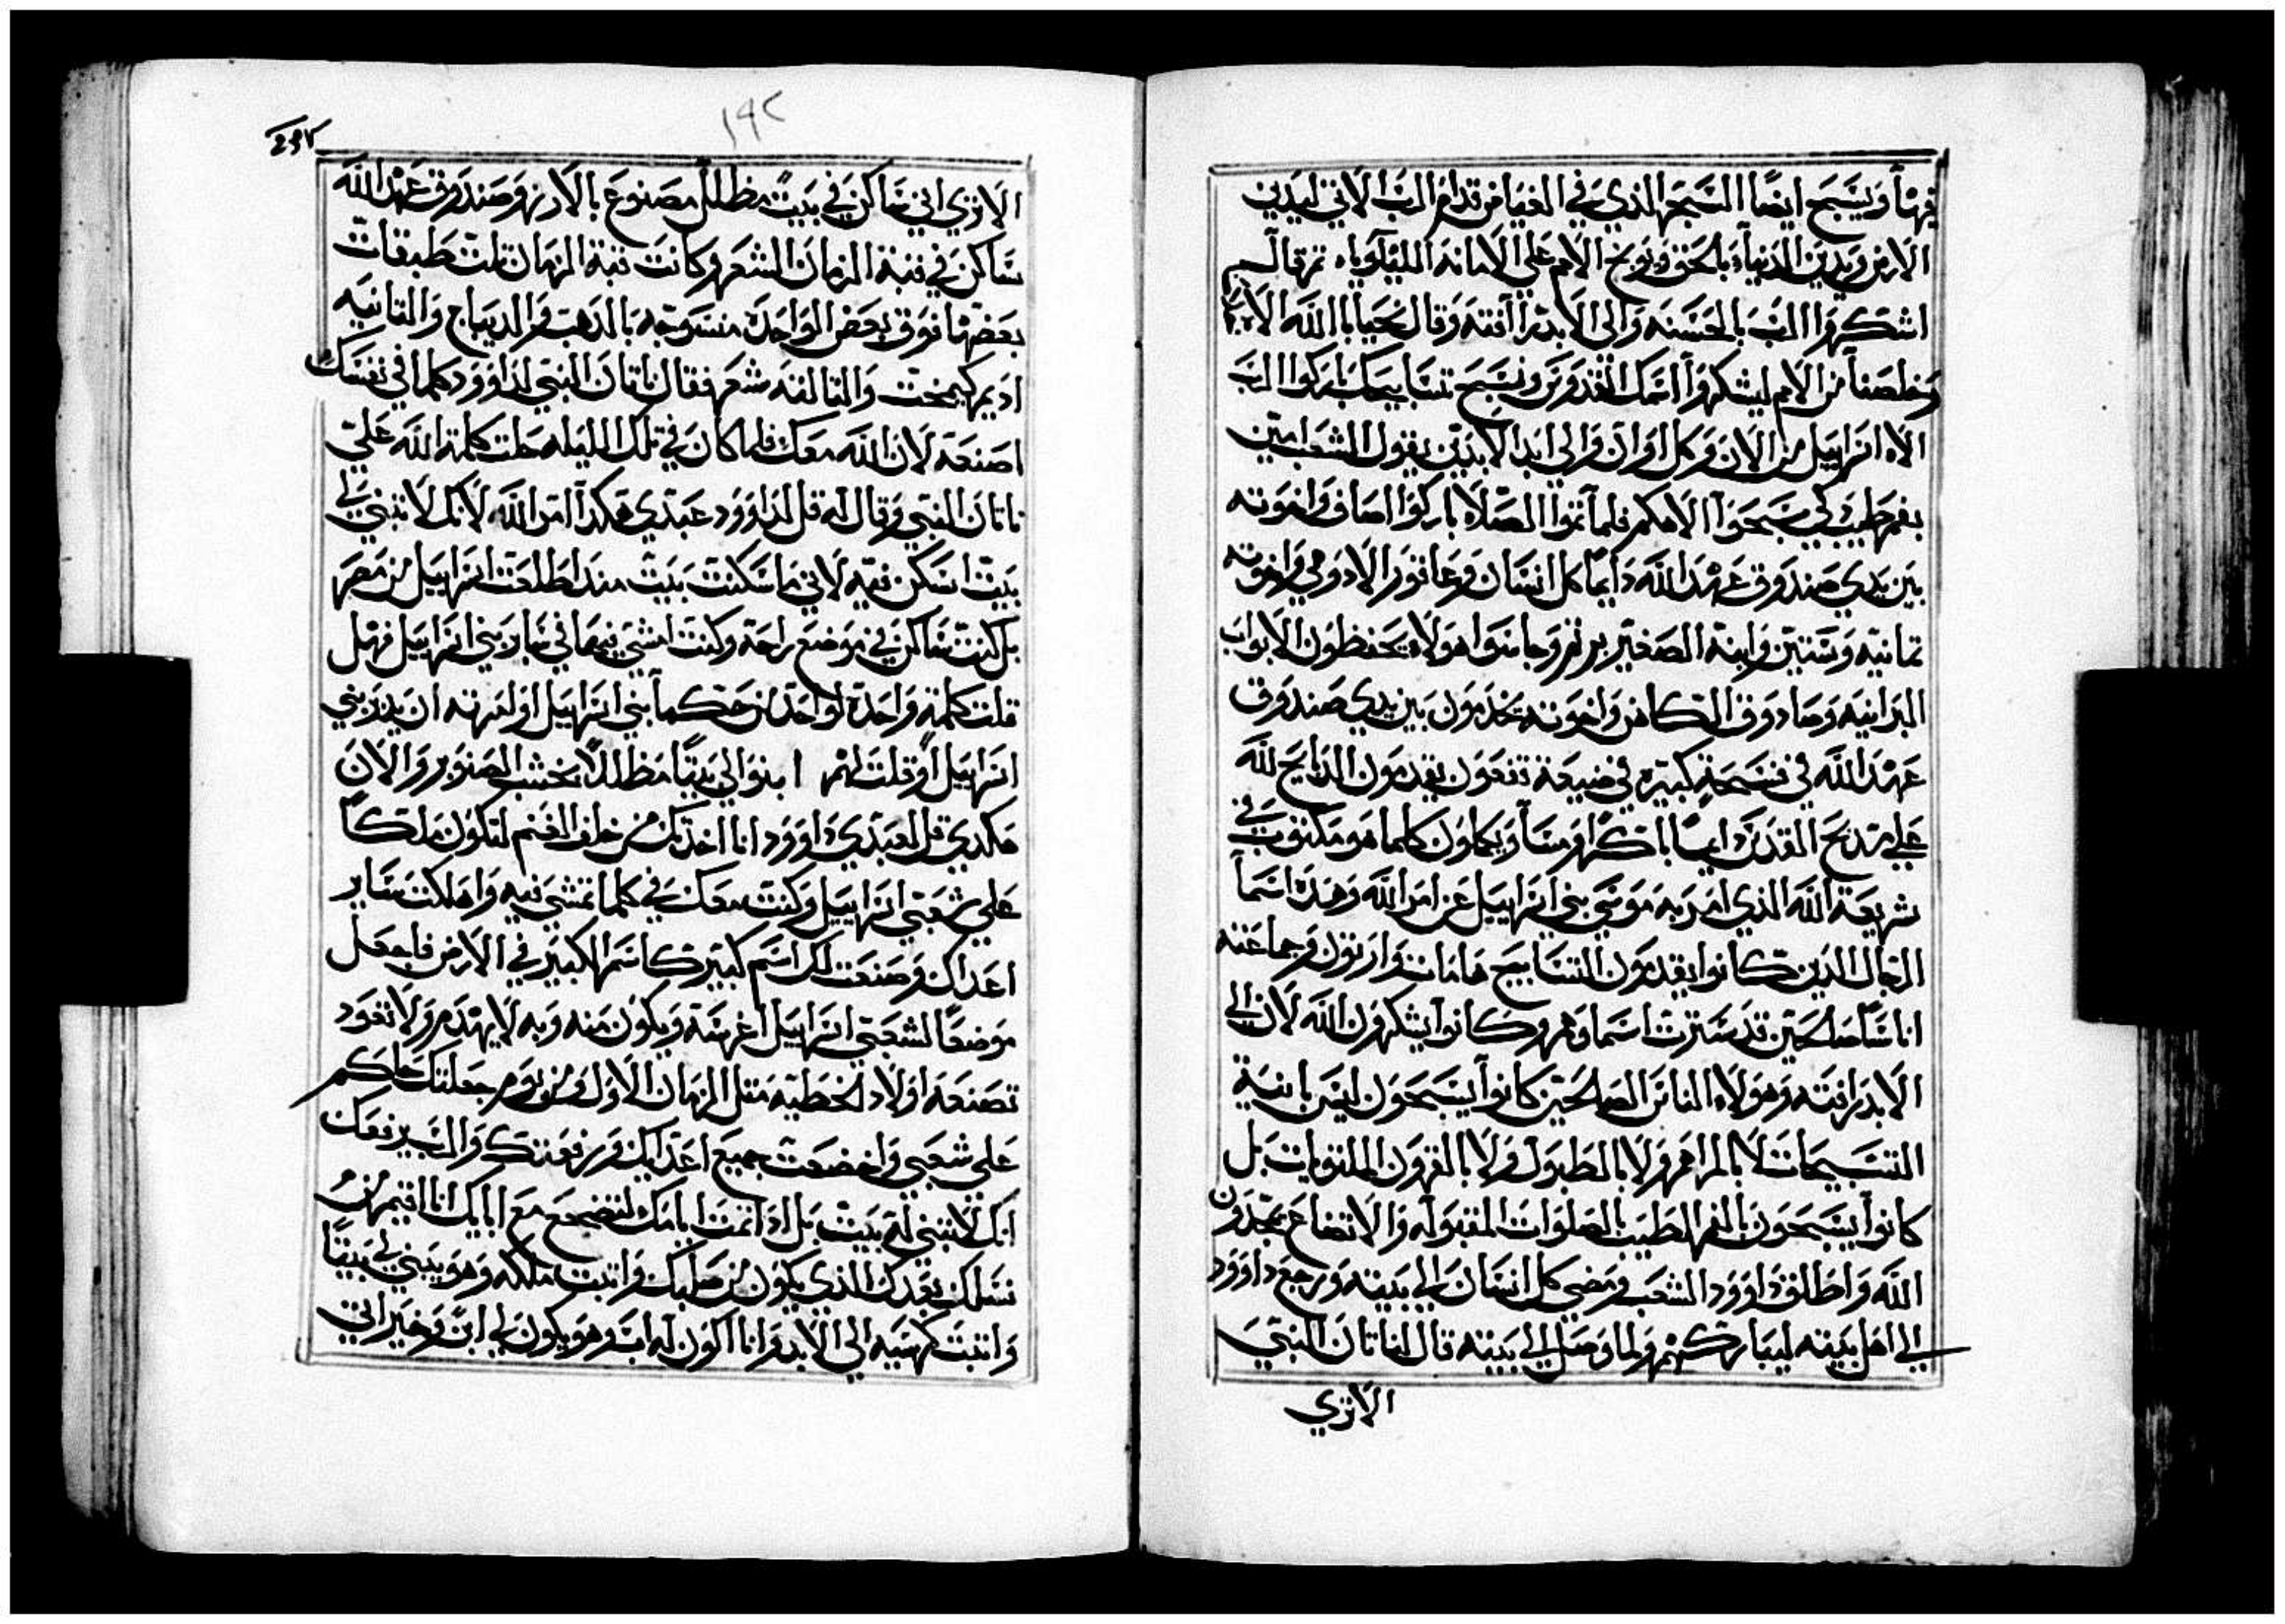 فيها ويسبح ايضًا الشجر الذي في الغياض قدام الرب لاتي ليدين
الارض ويدين الدنيا بالحق ويوبخ الامم على الامانه الليلوياه ثم قال لهم
اشكروا الرب بالحسنه والى الابد رافته وقال نجينا يا الله الاهنا
وخلصنا من الامم لنشكروا اسمك القدوس ونسبح تسابيحك باركوا الرب
الاه اسراييل من الان وكل اوان والى ابد الابدين يقول الشعب امين
بفم طيب كي سبحوا الاهكم فلما تموا الصلاه باركوا اصاف واخوته
بين يدي صندوق عهد الله دايمًا كل انسان وعاقور الادومي واخوته
تمانيه وستين وابنه الصغير يرتم وجامتوا هولاء يحفظون الابواب
البرانيه وصادوق الكاهن واخوته يخدمون بين يدي صندوق
عهد الله في فسحة كبيره في ضيعة تقعون يقدمون الدبايح لله
على مدبح القدس دايمًا باكرًا ومسآ ويكملون كلما هو مكتوب في
شريعة الله الذي امر به موسى بني اسراييل عن امر الله وهده اسمآ
الرجال الدين كانوا يقدمون التسابيح هامان وارتون وجماعته
اناسًا صالحين قد سترت اسماوهم وكانوا يشكرون الله لان الى
الابد رافته وهولاء الناس الصالحين كانوا يسبحون ليس بانية
التسبيحات لا بالمزامر ولا بالطبول ولا بالقرون الملتويات بل
كانوا يسبحون بالفم الطيب بالصلوات المقبوله والاتضاع يمجدون
الله واطلق داوود الشعب ومضى كل انسان الى بيته ورجع داوود
الى اهل بيته ليباركهم ولما وصل الى بيته قال لناتان النبي
الاتري
١٩٢
الاتري اني ساكن في بيت مظلل مصنوع بالارز وصندوق عهد الله
ساكن في قبة الزمان الشعر وكانت قبة الزمان تلت طبقات
بعضها فوق بعض الواحدة منسوجه بالدهب والديباج والتانيه
اديم كيمخت والتالته شعر فقال ناتان النبي لداوود كلما في نفسك
اصنعه لان الله معك فلما كان في تلك الليله حلت كلمة الله على
ناتان النبي وقال له قل لداوود عبدي هكدا امر الله لانك لا تبني لي
بيت اسكن فيه لاني ما سكنت بيت مند اطلعت اسراييل من مصر
بل كنت ساكن في موضع راحة وكنت امشي فيما في ساير بني اسراييل فهل
قلت كلمة واحدة لواحد من حكمآ بني اسراييل او امرته ان يدبر بني
اسراييل او قلت لهم ابنوا لي بيتًا مظللًا بخشب الصنوبر والان
هكدي قل لعبدي داوود انا اخدتك من خلف الغنم لتكون ملكًا
على شعبي اسراييل وكنت معك في كلما تمشي فيه واهلكت ساير
اعداك وصنعت لك اسم كبير كاسم الكبير في الارض فاجعل
موضعًا لشعبي اسراييل اغرسة ويكون منه وبه لا يهدم ولا تعود
تصنعه اولاد الخطيه متل الزمان الاول ومن يوم جعلتك حاكم
على شعبي واخضعت جميع اعدايك ورفعتك والرب يرفعك
انك لا تبني له بيت بل ادا تمت ايامك لتضجع مع ابايك انا اقيم من
نسلك بعدك الذي يكون من صلبك واتبت ملكه وهو يبني لي بيتًا
واتبت كرسيه الى الابد وانا اكون له اب وهو يكون لي ابن وخيراتي